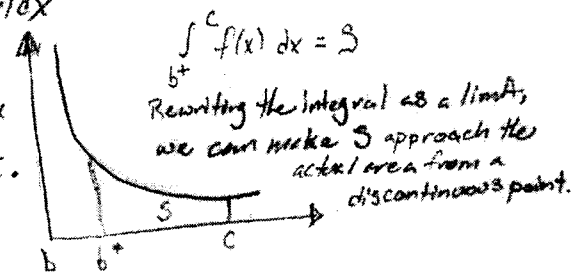 /dx
∫ᶜ_b⁺ f(x) dx = S
Rewriting the integral as a limit,
we can make S approach the
actual area from a
discontinuous point.
x
.
S
b b⁺ C